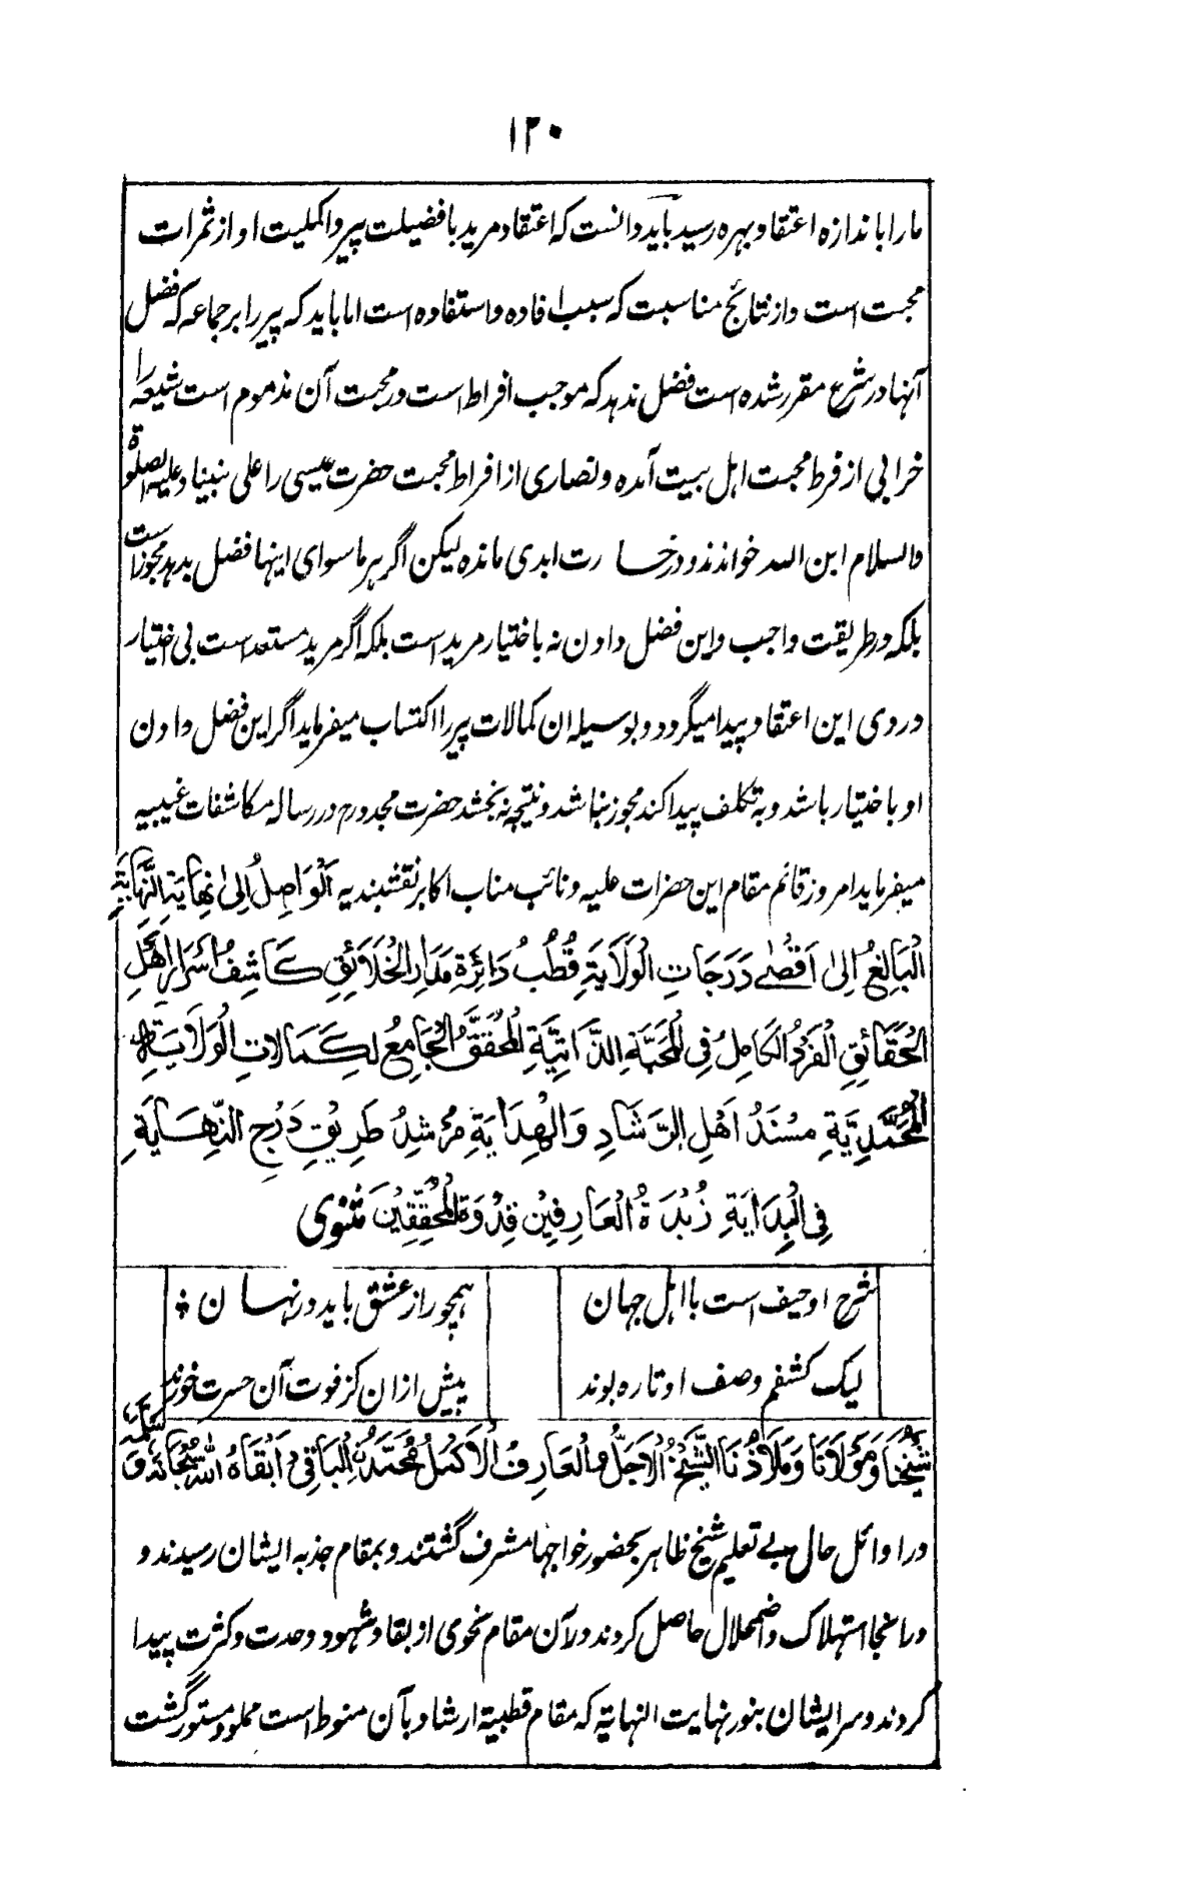 ۱۲۰
مارا باندازه اعتقاد بهره رسید باید دانست که اعتقاد مرید با فضیلت پیر و اکملیت او از ثمرات
محبت است و از نتائج مناسبت که سبب افاده و استفاده است اما باید که پیر را بر جماعه که فضل
آنها در شرع مقرر شده است فضل ندهد که موجب افراط است در محبت آن مذموم است شیعه را
خرابی از فرط محبت اہل بیت آمده و نصاری از افراط محبت حضرت عیسی را علی نبینا و علیه الصلوة
والسلام ابن الله خواندند و در خسارت ابدی مانده لیکن اگر بر ماسوای اینها فضل بدهد مجوز است
بلکه در طریقت واجب و این فضل دادن نه باختیار مرید است بلکه اگر مرید مستعد است بی اختیار
در وی این اعتقاد پیدا میگردد و بوسیله ان کمالات پیر را اکتساب میفرماید اگر این فضل دادن
او باختیار باشد و به تکلف پیدا کند مجوز نباشد و نتیجه نه بخشد حضرت مجدد رح در رساله مکاشفات غیبیه
میفرماید امروز قائم مقام این حضرات علیه و نائب مناب اکابر نقشبندیه اَلْوَاصِلُ اِلیٰ نِهَایَةِ النِّهَایَةِ
الْبَالِغُ اِلیٰ اَقْصٰی دَرَجَاتِ الْوَلَایَةِ قُطْبُ دَائِرَةِ مَدَارِ الْخَلَائِقِ کَاشِفُ اَسْرَارِ اَهْلِ
الْحَقَائِقِ الْفَرْدُ الْکَامِلُ فِی الْمَحَبَّةِ الذَّاتِیَّةِ الْمُحَقَّقُ الْجَامِعُ لِکَمَالَاتِ الْوَلَایَةِ
الْمُحَمَّدِیَّةِ مسْنَدُ اَهْلِ الرَّشَادِ وَالْهِدَایَةِ مُرْشِدُ طَرِیْقِ دَرْجِ النِّهَایَةِ
فِی الْبِدَایَةِ زُبْدَةُ الْعَارِفِیْنَ قِدْوَةُ الْمُحَقِّقِیْنَ مثنوی
شرح او حیف است با اہل جهان
ہمچو راز عشق باید در نهان
لیک کشفم وصف او تا ره بوند
پیش ازان کز فوت آن حسرت خورند
شَیْخُنَا وَمَوْلَانَا وَمَلَاذُنَا الشَّیْخُ الْاَجَلُّ والْعَارِفُ الْاَکْمَلُ مُحَمَّدُنِ الْبَاقِیْ اَبْقَاهُ اللّٰهُ سُبْحَانَهٗ وَ سَلَّمَهٗ
در اوائل حال بے تعلیم شیخ ظاہر بحضور خواجہا مشرف گشتند و بمقام جذبه ایشان رسیدند و
در انجا استہلاک و اضمحلال حاصل کردند در آن مقام نحوی از بقا و شہود وحدت و کثرت پیدا
کردند و سر ایشان بنور نہایت النہایة که مقام قطبیة ارشاد بآن منوط است مملو و مستور گشت